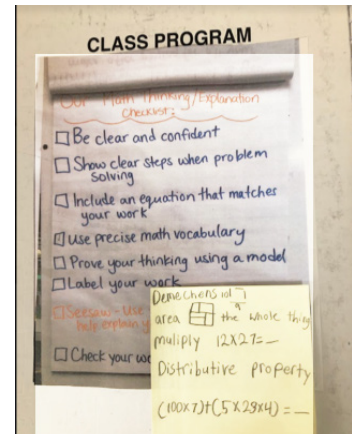 CLASS PROGRAM
Our Math Thinking/Explanation
Checklist:
Be clear and confident
Show clear steps when problem
solving
Include an equation that matches
your work
use precise math vocabulary
Prove your thinking using a model
Label your work
Seesaw - Use
help explain
Check your wo
area the whole thing
muliply 12x27=_
Distributive property
(100x7)+(5x29x4)=_